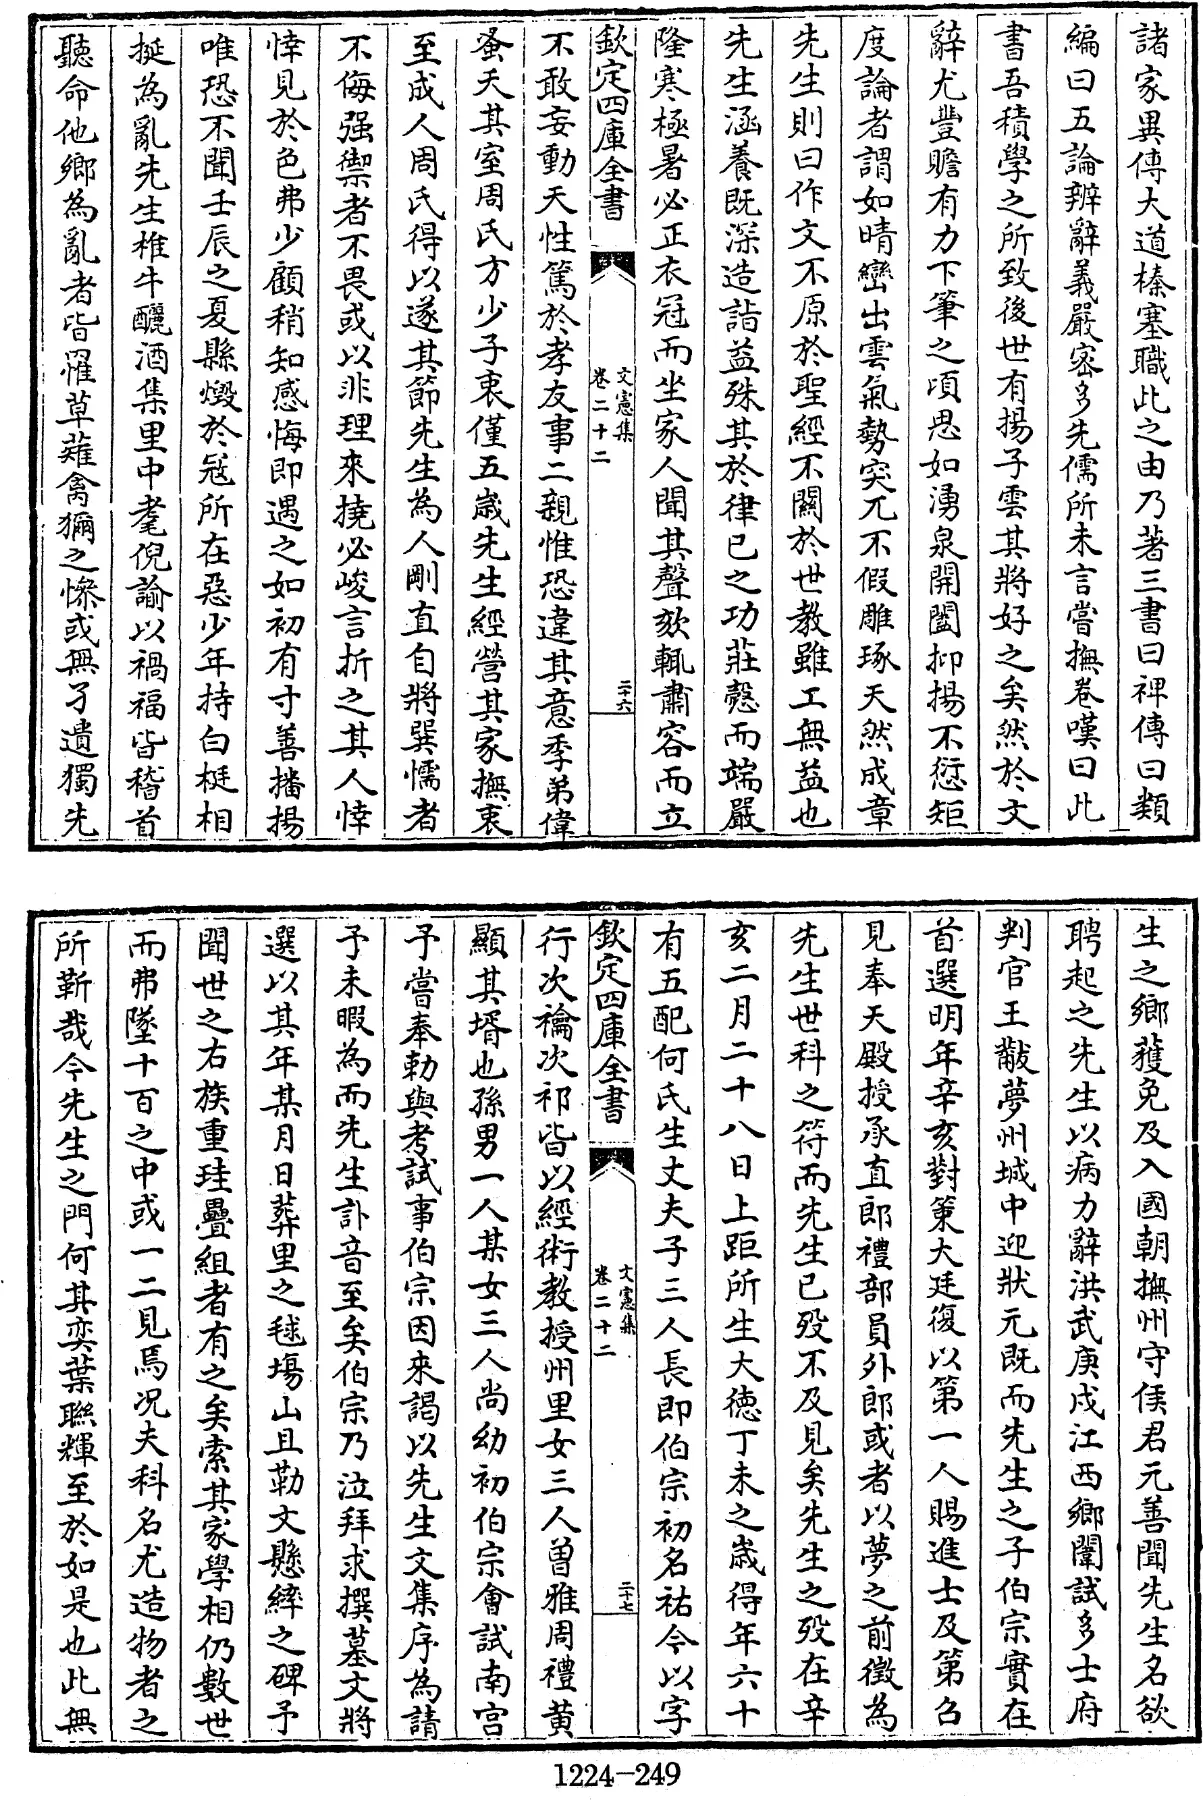 諸家異傳大道榛塞職此之由乃著三書曰禆傳曰類
編曰五論辨辭義嚴密多先儒所未言嘗撫卷嘆曰此
書吾積學之所致後世有揚子雲其將好之矣然於文
辭尤豐贍有力下筆之頃思如湧泉開闔抑揚不愆矩
度論者謂如晴巒出雲氣勢突兀不假雕琢天然成章
先生則曰作文不原於聖經不關於世教雖工無益也
先生涵養既深造詣益殊其於律己之功莊慤而端嚴
隆寒極暑必正衣冠而坐家人聞其聲欬輒肅容而立
欽定四庫全書
文憲集
卷二十二
二十六
不敢妄動天性篤於孝友事二親惟恐違其意季弟偉
蚤夭其室周氏方少子衷僅五歲先生經營其家撫衷
至成人周氏得以遂其節先生為人剛直自將巽懦者
不侮强禦者不畏或以非理來撓必峻言折之其人悻
悻見於色弗少顧稍知感悔即遇之如初有寸善播揚
唯恐不聞壬辰之夏縣燬於冦所在惡少年持白梃相
挻為亂先生椎牛釃酒集里中耄倪諭以禍福皆稽首
聽命他鄉為亂者皆罹草薙禽獮之慘或無孑遺獨先
生之鄉獲免及入國朝撫州守侯君元善聞先生名欲
聘起之先生以病力辭洪武庚戌江西鄉闈試多士府
判官王黻夢州城中迎狀元既而先生之子伯宗實在
首選明年辛亥對策大廷復以第一人賜進士及第召
見奉天殿授承直郎禮部員外郎或者以夢之前徵為
先生世科之符而先生已歿不及見矣先生之歿在辛
亥二月二十八日上距所生大德丁未之歲得年六十
有五配何氏生丈夫子三人長即伯宗初名祐今以字
欽定四庫全書
文憲集
卷二十二
二十七
行次禴次祁皆以經術教授州里女三人曾雅周禮黃
顯其壻也孫男一人某女三人尚幼初伯宗會試南宫
予嘗奉勅與考試事伯宗因來謁以先生文集序為請
予未暇為而先生訃音至矣伯宗乃泣拜求撰墓文將
選以其年某月日葬里之毬塲山且勒文懸繂之碑予
聞世之右族重珪疊組者有之矣索其家學相仍數世
而弗墜十百之中或一二見焉况夫科名尤造物者之
所靳哉今先生之門何其奕葉聯輝至於如是也此無
1224-249